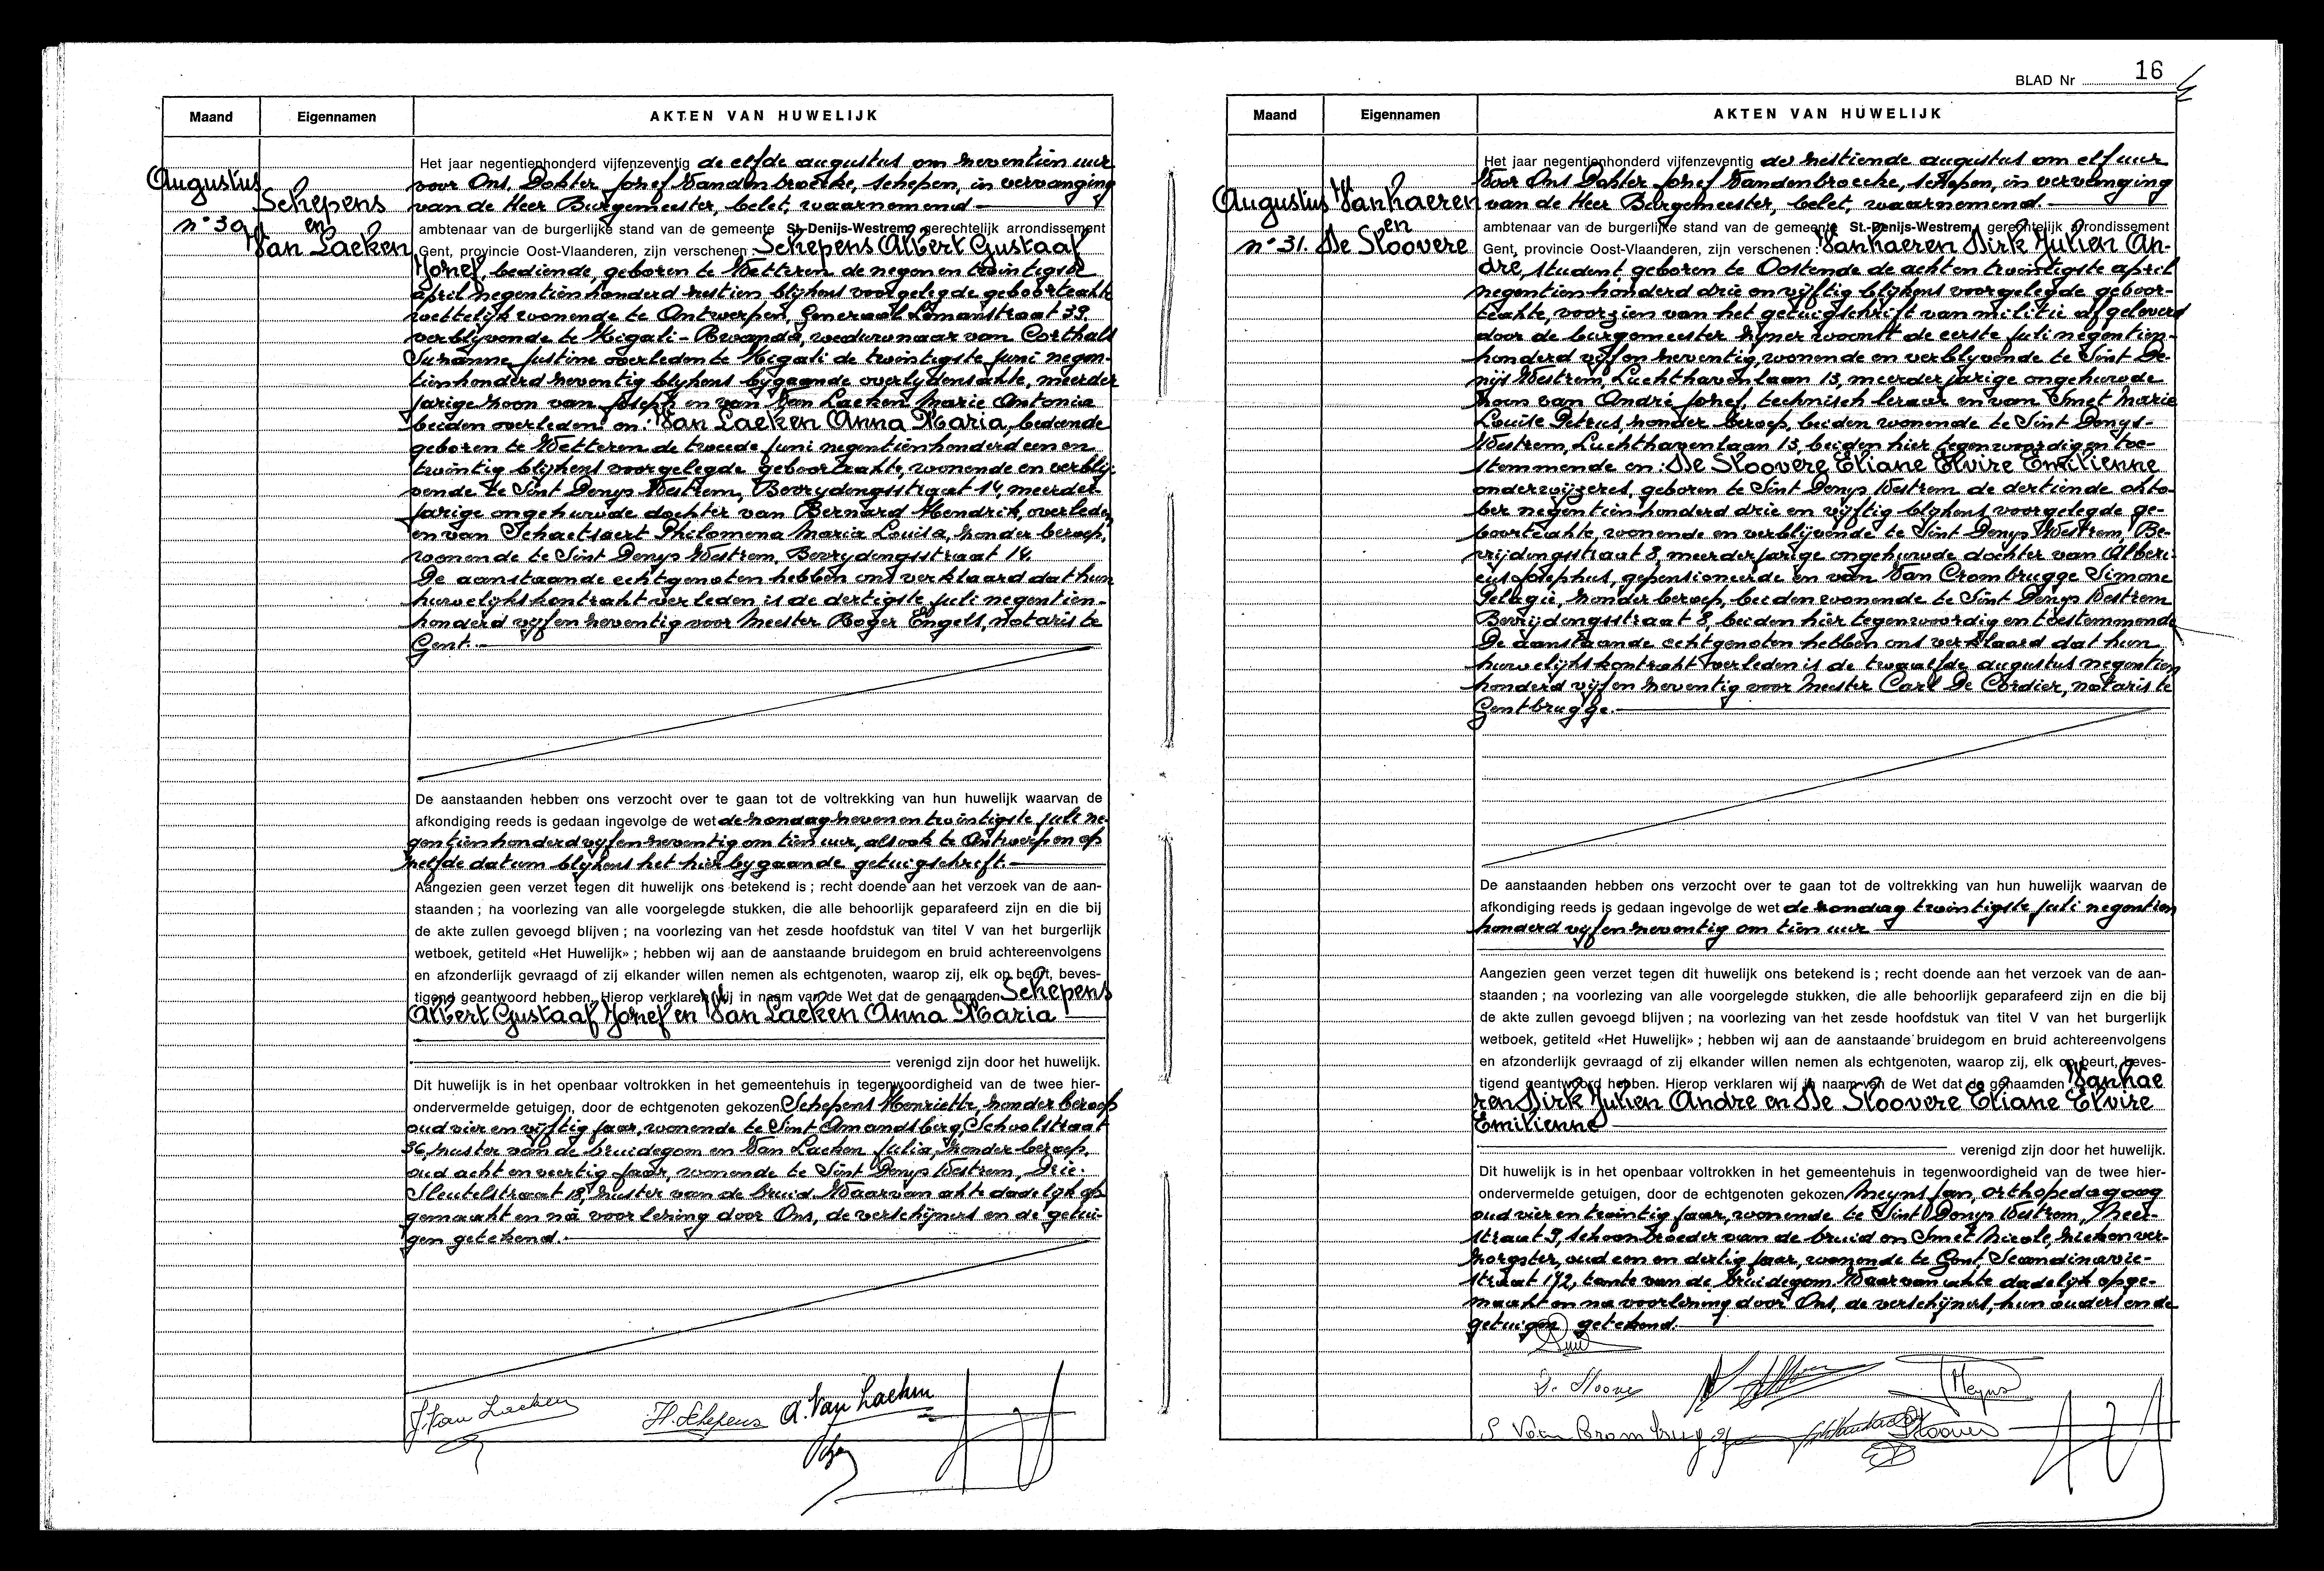 Maand
Eigennamen
AKTEN VAN HUWELIJK
Augustus
n° 30
Schepens
en
Van Laeken
Het jaar negentienhonderd vijfenzeventig de elfde augustus om zeventien uur
voor Ons, Dokter Jozef Vandenbroecke, schepen, in vervanging
van de Heer Burgemeester, belet, waarnemend
ambtenaar van de burgerlijke stand van de gemeente St.-Denijs-Westrem, gerechtelijk arrondissement
Gent, provincie Oost-Vlaanderen, zijn verschenen: Schepens Albert Gustaaf
Jozef, bediende, geboren te Wetteren de negen en twintigste
april negentienhonderd zestien blijkens voorgelegde geboorteakte
wettelijk wonende te Antwerpen, Generaal Lemanstraat 39,
verblijvende te Kigali-Rwanda, weduwnaar van Corthals
Suzanne Justine overleden te Kigali de twintigste juni negen-
tienhonderd zeventig blijkens bijgaande overlijdensakte, meerder
jarige zoon van Joseph en van Van Laeken Marie Antonia
beiden overleden en: Van Laeken Anna Maria, bediende
geboren te Wetteren de tweede juni negentienhonderd een en
twintig blijkens voorgelegde geboorteakte, wonende en verblij-
vende te Sint Denys Westrem, Bevrydingsstraat 14, meerder-
jarige ongehuwde dochter van Bernard Hendrik, overleden
en van Schaetsaert Philomena Maria Louisa, zonder beroep,
wonende te Sint Denys Westrem, Bevrydingsstraat 14.
De aanstaande echtgenoten hebben ons verklaard dat hun
huwelijkskontrakt verleden is de dertigste juli negentien-
honderd vijfenzeventig voor Meester Roger Engels, notaris te
Gent.
De aanstaanden hebben ons verzocht over te gaan tot de voltrekking van hun huwelijk waarvan de
afkondiging reeds is gedaan ingevolge de wet de zondag zeven en twintigste juli ne-
gentienhonderd vijfenzeventig om tien uur, alsook te Antwerpen op
zelfde datum blijkens het hierbygaande getuigschrift.
Aangezien geen verzet tegen dit huwelijk ons betekend is; recht doende aan het verzoek van de aan-
staanden; na voorlezing van alle voorgelegde stukken, die alle behoorlijk geparafeerd zijn en die bij
de akte zullen gevoegd blijven; na voorlezing van het zesde hoofdstuk van titel V van het burgerlijk
wetboek, getiteld «Het Huwelijk»; hebben wij aan de aanstaande bruidegom en bruid achtereenvolgens
en afzonderlijk gevraagd of zij elkander willen nemen als echtgenoten, waarop zij, elk op beurt, beves-
tigend geantwoord hebben. Hierop verklaren wij in naam van de Wet dat de genaamden Schepens
Albert Gustaaf Jozef en Van Laeken Anna Maria
verenigd zijn door het huwelijk.
Dit huwelijk is in het openbaar voltrokken in het gemeentehuis in tegenwoordigheid van de twee hier-
ondervermelde getuigen, door de echtgenoten gekozen Schepens Henriette, zonder beroep
oud vier en vijftig jaar, wonende te Sint Amandsberg, Schoolstraat
36, zuster van de bruidegom en Van Laeken Julia, zonder beroep,
oud acht en veertig jaar, wonende te Sint Denys Westrem, Drie-
Sleutelstraat 18, zuster van de bruid. Waarvan akte dadelijk op
gemaakt en na voorlezing door Ons, de verschijners en de getui-
gen getekend.
J. Van Laeken
H. Schepens
A. Van Laeken
BLAD Nr 16
Maand
Eigennamen
AKTEN VAN HUWELIJK
Augustus
n° 31.
Vanhaeren
en
De Sloovere
Het jaar negentienhonderd vijfenzeventig de zestiende augustus om elf uur
Voor Ons Dokter Jozef Vandenbroecke, schepen, in vervanging
van de Heer Burgemeester, belet, waarnemend
ambtenaar van de burgerlijke stand van de gemeente St.-Denijs-Westrem, gerechtelijk arrondissement
Gent, provincie Oost-Vlaanderen, zijn verschenen: Vanhaeren Dirk Julien An-
dre, student, geboren te Oostende de acht en twintigste april
negentienhonderd drie en vijftig blijkens voorgelegde geboor-
teakte, voorzien van het getuigschrift van militie afgeleverd
door de burgemeester zijner woonst de eerste juli negentien-
honderd vijfenzeventig, wonende en verblijvende te Sint De-
nijs Westrem, Luchthavenlaan 13, meerderjarige ongehuwde
zoon van André Jozef, technisch leraar en van Smet Marie
Louise Petrus, zonder beroep, beiden wonende te Sint Denys-
Westrem, Luchthavenlaan 13, beiden hier tegenwoordig en toe-
stemmende en: De Sloovere Eliane Elvire Emilienne
onderwijzeres, geboren te Sint Denys Westrem de dertiende okto-
ber negentienhonderd drie en vijftig blijkens voorgelegde ge-
boorteakte, wonende en verblijvende te Sint Denys Westrem, Be-
vrijdingsstraat 8, meerderjarige ongehuwde dochter van Alberi-
cus Josephus, gepensioneerde en van Van Crombrugge Simone
Pelagie, zonder beroep, beiden wonende te Sint Denys Westrem
Bevrijdingsstraat 8, beiden hier tegenwoordig en toestemmende
De aanstaande echtgenoten hebben ons verklaard dat hun
huwelijkskontrakt verleden is de twaalfde augustus negentien
honderd vijfenzeventig voor Meester Carl De Cordier, notaris te
Gentbrugge.
De aanstaanden hebben ons verzocht over te gaan tot de voltrekking van hun huwelijk waarvan de
afkondiging reeds is gedaan ingevolge de wet de zondag twintigste juli negentien
honderd vijfenzeventig om tien uur
Aangezien geen verzet tegen dit huwelijk ons betekend is; recht doende aan het verzoek van de aan-
staanden; na voorlezing van alle voorgelegde stukken, die alle behoorlijk geparafeerd zijn en die bij
de akte zullen gevoegd blijven; na voorlezing van het zesde hoofdstuk van titel V van het burgerlijk
wetboek, getiteld «Het Huwelijk»; hebben wij aan de aanstaande bruidegom en bruid achtereenvolgens
en afzonderlijk gevraagd of zij elkander willen nemen als echtgenoten, waarop zij, elk op beurt, beves-
tigend geantwoord hebben. Hierop verklaren wij in naam van de Wet dat de genaamden Vanhae
ren Dirk Julien Andre en De Sloovere Eliane Elvire
Emilienne
verenigd zijn door het huwelijk.
Dit huwelijk is in het openbaar voltrokken in het gemeentehuis in tegenwoordigheid van de twee hier-
ondervermelde getuigen, door de echtgenoten gekozen Meyns Jan, orthopedagoog
oud vier en twintig jaar, wonende te Sint Denys Westrem, Meer-
straat 9, schoonbroeder van de bruid en Smet Nicole, ziekenver-
zorgster, oud een en dertig jaar, wonende te Gent, Scandinavie-
straat 172, tante van de bruidegom. Waarvan akte dadelijk opge-
maakt en na voorlezing door Ons, de verschijners, hun ouders en de
getuigen getekend.
Smet
De Sloovere
Meyns
S Van Crombrugge